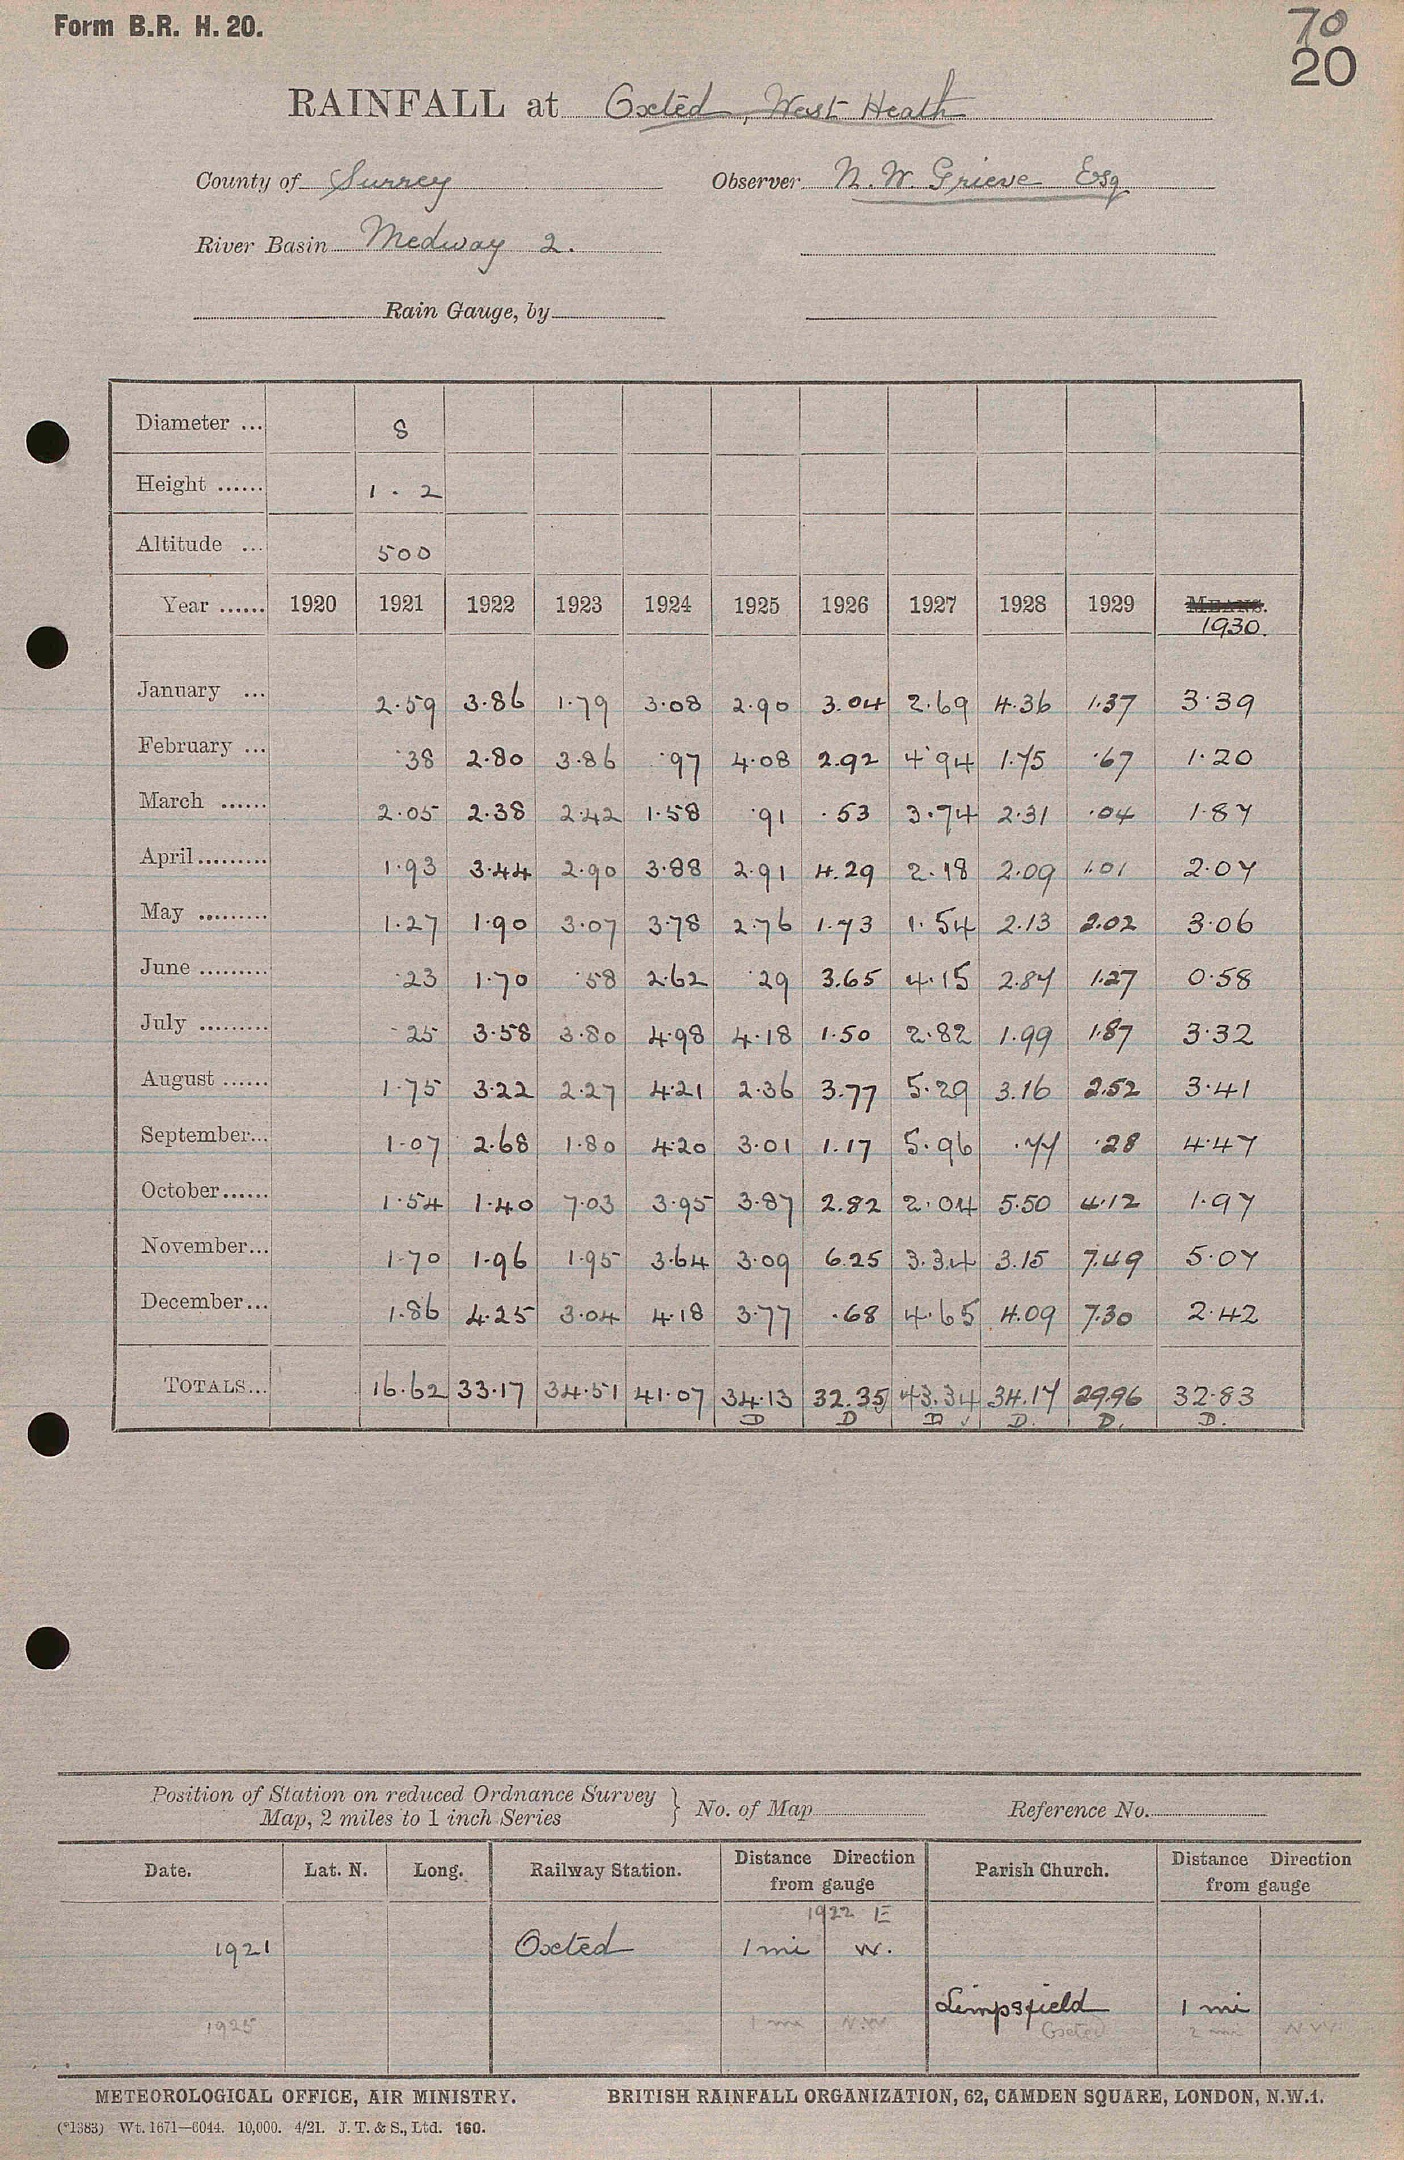 Form B.R. H. 20.
70
20
RAINFALL at Oxted, West Heath
County of Surrey Observer N. W. Grieve Esq
River Basin Medway 2.
Rain Gauge, by
Diameter ... 8
Height ...... 1 . 2
Altitude ... 500
Year ...... 1920 1921 1922 1923 1924 1925 1926 1927 1928 1929 MEANS.
1930.
January ... 2.59 3.86 1.79 3.08 2.90 3.04 2.69 4.36 1.37 3.39
February ... .38 2.80 3.86 .97 4.08 2.92 4.94 1.75 .67 1.20
March ...... 2.05 2.38 2.42 1.58 .91 .53 3.74 2.31 .04 1.87
April ......... 1.93 3.44 2.90 3.88 2.91 4.29 2.18 2.09 1.01 2.07
May ......... 1.27 1.90 3.07 3.78 2.76 1.73 1.54 2.13 2.02 3.06
June ......... .23 1.70 .58 2.62 .29 3.65 4.15 2.87 1.27 0.58
July ......... .25 3.58 3.80 4.98 4.18 1.50 2.82 1.99 1.87 3.32
August ...... 1.75 3.22 2.27 4.21 2.36 3.77 5.29 3.16 2.52 3.41
September... 1.07 2.68 1.80 4.20 3.01 1.17 5.96 .77 .28 4.47
October...... 1.54 1.40 7.03 3.95 3.87 2.82 2.04 5.50 4.12 1.97
November... 1.70 1.96 1.95 3.64 3.09 6.25 3.34 3.15 7.49 5.07
December... 1.86 4.25 3.04 4.18 3.77 .68 4.65 4.09 7.30 2.42
TOTALS... 16.62 33.17 34.51 41.07 34.13 32.35 43.34 34.17 29.96 32.83
D D D ✓ D. D. D.
Position of Station on reduced Ordnance Survey
Map, 2 miles to 1 inch Series } No. of Map Reference No.
Date. Lat. N. Long. Railway Station. Distance Direction
from gauge Parish Church. Distance Direction
from gauge
1922 E
1921 Oxted 1 mi W.
Limpsfield 1 mi
1925 1 mi N.W. Oxted 2 mi N.W.
METEOROLOGICAL OFFICE, AIR MINISTRY. BRITISH RAINFALL ORGANIZATION, 62, CAMDEN SQUARE, LONDON, N.W.1.
(*1383) Wt. 1671—6044. 10,000. 4/21. J. T. & S., Ltd. 160.